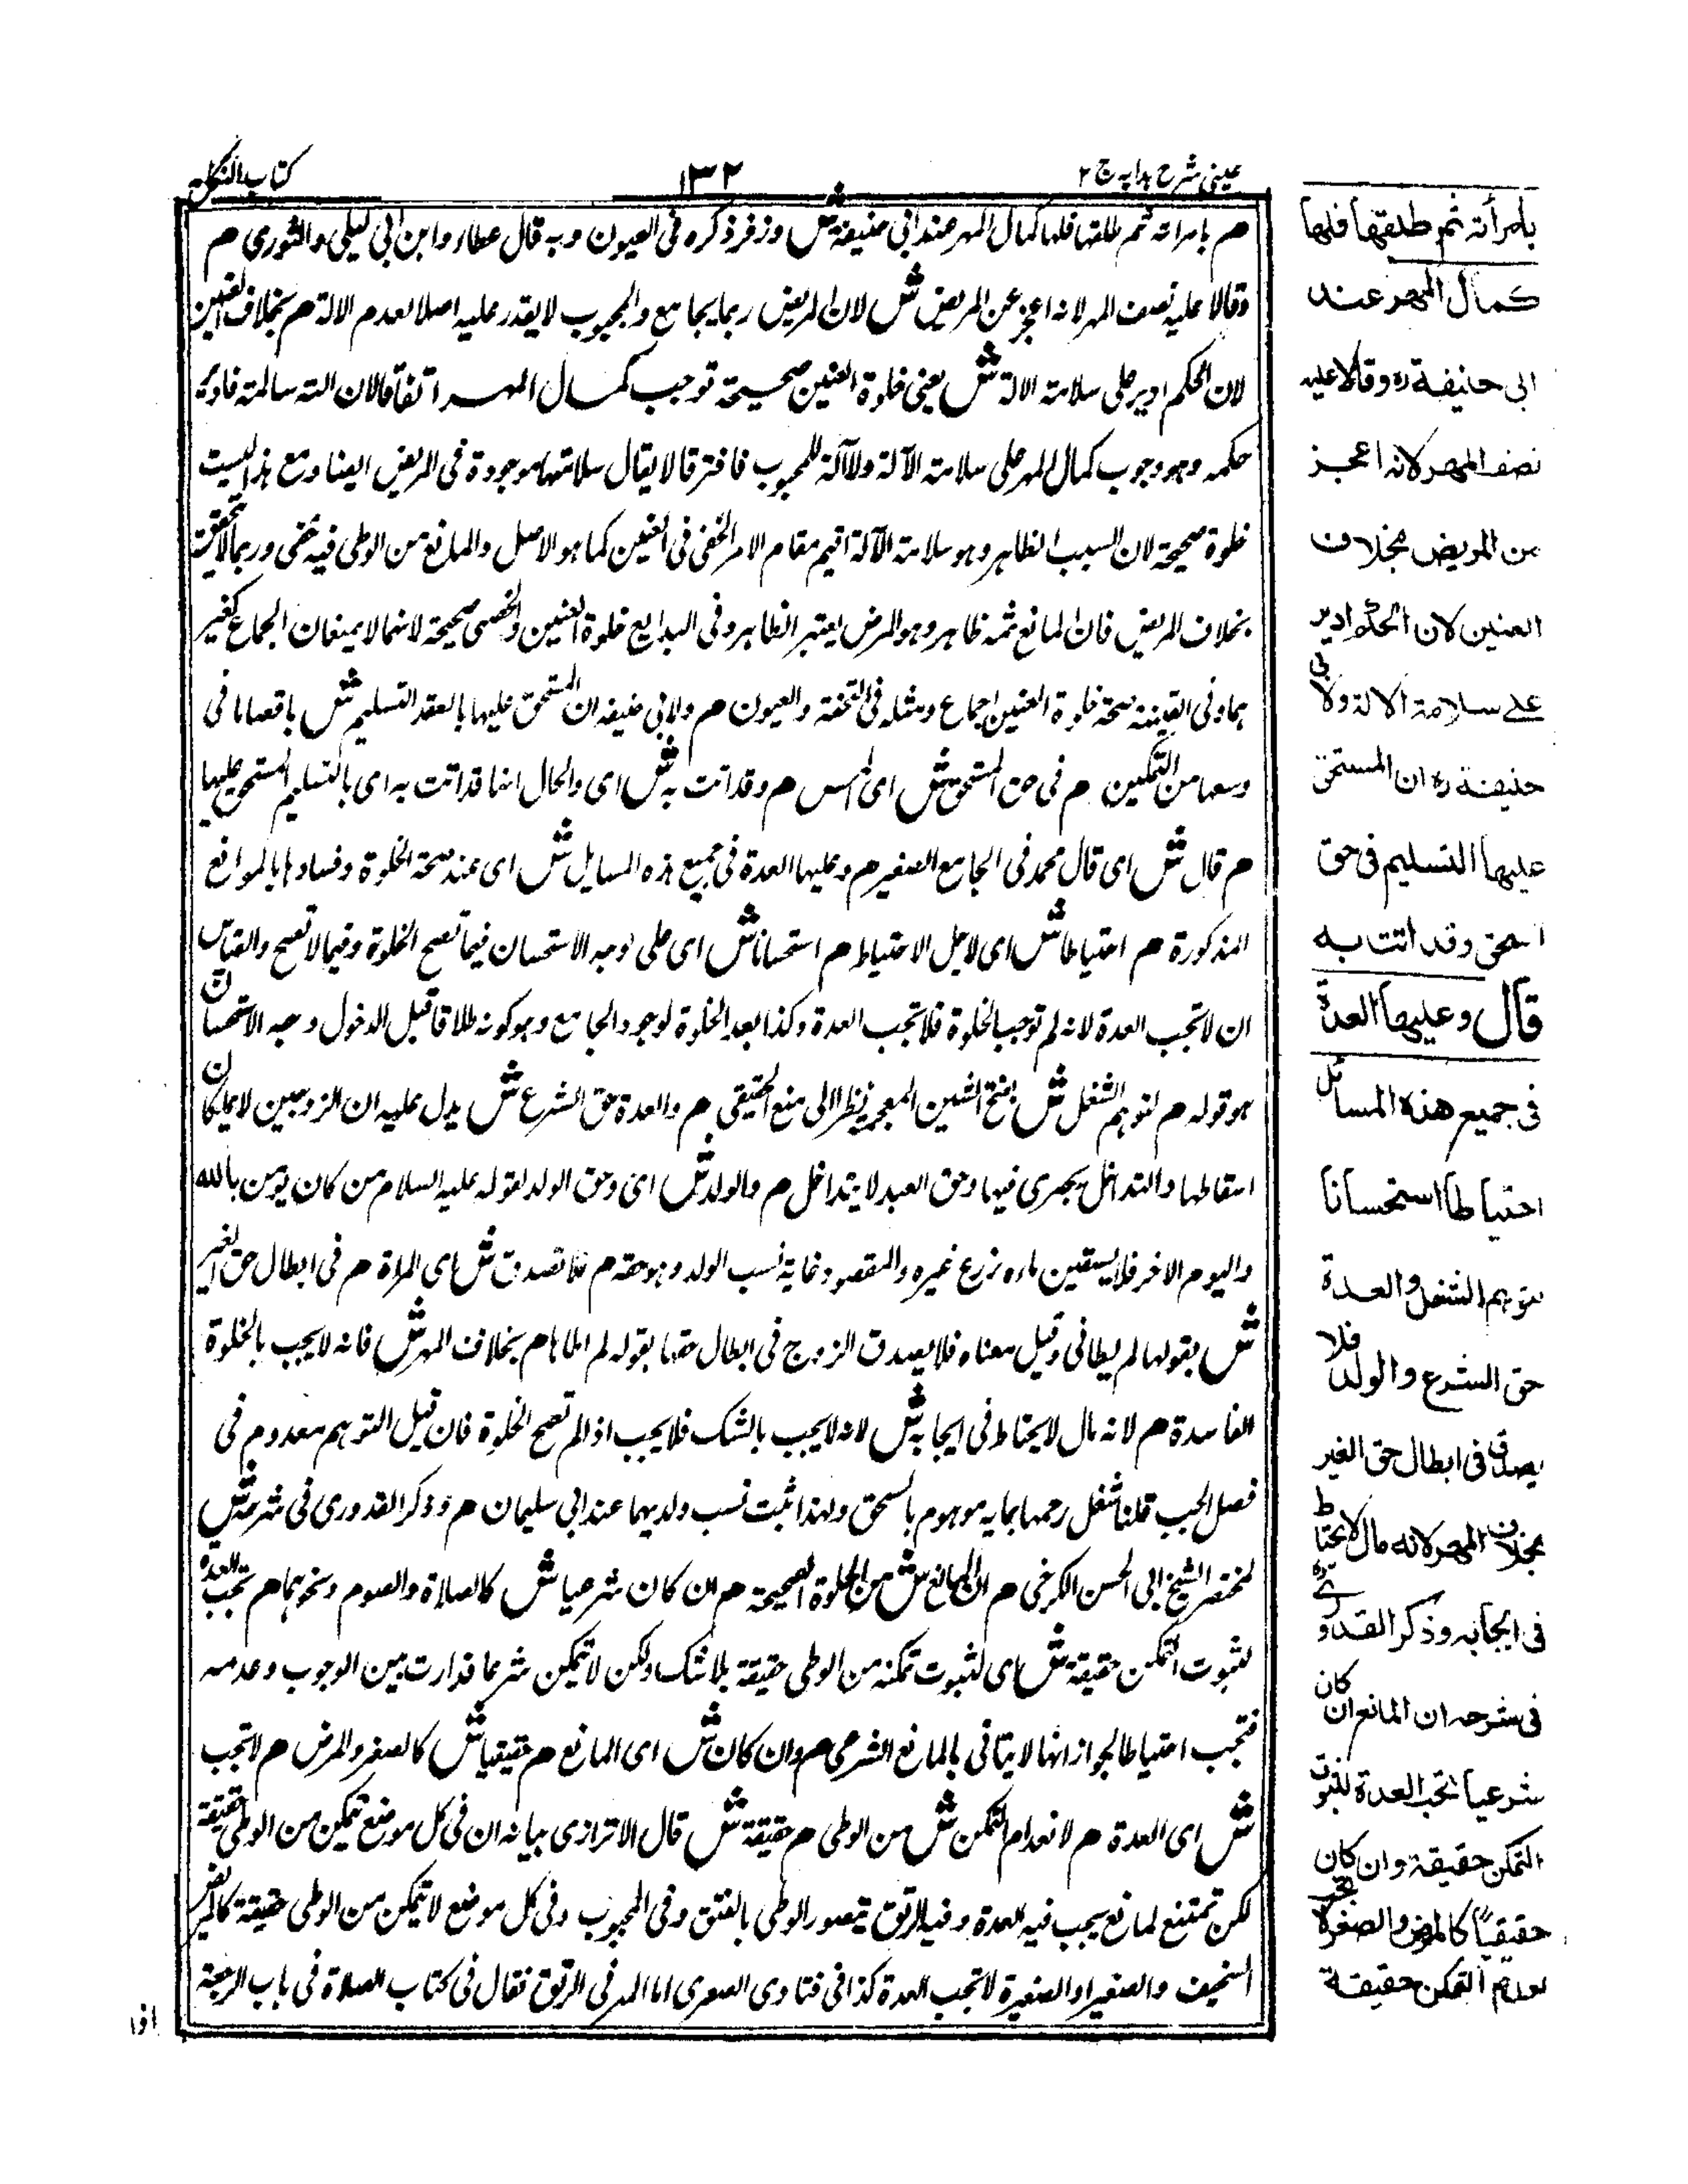 عينى شرح هدايه ج ٢
١٣٢
كتاب النكاح
م بامراته ثم طلقها فلها كمال المهر عند ابى حنيفة ش وزفر ذكره فى العيون وبه قال عطاء وابن ابى ليلى والثورى م
وقالا عليه نصف المهر لانه اعجز عن المريض ش لان المريض ربما يجامع والمجبوب لا يقدر عليه اصلا لعدم الالة م بخلاف العنين
لان الحكم ادير على سلامته الالة ش يعنى خلوة العنين صحيحة توجب كمال المهر اتفاقا لان الته سالمته فادير
حكمه وهو وجوب كمال المهر على سلامته الآلة ولا آلة للمجبوب فافترقا لا يقال سلامتها موجودة فى المريض ايضا ومع هذا ليست
خلوة صحيحة لان السبب الظاهر وهو سلامته الآلة اقيم مقام الامر الخفى فى العنين كما هو الاصل والمانع من الوطى فيه خفى وربما لا تحقق
بخلاف المريض فان المانع ثمه ظاهر وهو المرض يعتبر الظاهر وفى البدايع خلوة العنين والخصى صحيحة لانهما لا يمنعان الجماع كغير
هما وفى القينه صحة خلوة العنين اجماع ومثله فى التحفة والعيون م ولابى حنيفه ان المستحق عليها بالعقد التسليم ش باقصا ما فى
وسعها من التمكين م فى حق المستحق ش اى المس م وقد اتت به ش اى والحال انها قد اتت به اى بالتسليم المستحق عليها
م قال ش اى قال محمد فى الجامع الصغير م وعليها العدة فى جميع هذه المسايل ش اى عند صحة الخلوة وفسادها بالموانع
المذكورة م احتياطا ش اى لاجل الاحتياط م استحسانا ش اى على وجه الاستحسان فيما تصح الخلوة وفيما لا تصح والقياس
ان لا تجب العدة لانه لم توجب الخلوة فلا تجب العدة وكذا بعد الخلوة لوجود الجامع وهو كونه طلاقا قبل الدخول وجه الاستحسان
هو قوله م لتوهم الشغل ش بفتح الشين المعجمه نظرا الى منع الحقيقى م والعدة حق الشرع ش يدل عليه ان الزوجين لا يملكان
اسقاطها والتداخل يجرى فيها وحق العبد لا يتداخل م والولد ش اى وحق الولد لقوله عليه السلام من كان يومن بالله
واليوم الاخر فلا يسقين ماءه زرع غيره والمقصود غاية نسب الولد وهو حقه م فلا تصدق ش اى المراة م فى ابطال حق الغير
ش بقولها لم يطانى وقيل معناه فلا يصدق الزوج فى ابطال حقها بقوله لم اطاها م بخلاف المهر ش فانه لا يجب بالخلوة
الفاسدة م لانه مال لا يحتاط فى ايجابه ش لانه لا يجب بالشك فلا يجب اذا لم تصح الخلوة فان قيل التوهم معدوم فى
فصل الجب قلنا شغل رحمها بمايه موهوم بالسحق ولهذا ثبت نسب ولديهما عند ابى سليمان م وذكر القدورى فى شرحه ش
لمختصر الشيخ ابى الحسن الكرخى م ان المانع ش من الخلوة الصحيحة م ان كان شرعيا ش كالصلاة والصوم ونحوهما م تجب العدة
لثبوت التمكن حقيقة ش اى لثبوت تمكنه من الوطى حقيقة بلا شك ولكن لا تمكن شرعا قدارت بين الوجوب وعدمه
فتجب احتياطا لجواز انها لا يتاتى بالمانع الشرعى م وان كان ش اى المانع م حقيقيا ش كالصغر والمرض م لا تجب
ش اى العدة م لانعدام التمكن ش من الوطى م حقيقة ش قال الاترازى بيانه ان فى كل موضع تمكن من الوطى حقيقة
لكن تمتنع لمانع يجب فيه العدة وفيه الرتق يتصور الوطى بالفتق وفى المجبوب وفى كل موضع لا تمكن من الوطى حقيقة كالمريض
النحيف والصغير او الصغيرة لا تجب العدة كذا فى فتاوى الصغرى اما المهر فى الرتق نقال فى كتاب الصلاة فى باب الرجعة
اذا
بامرأته ثم طلقها فلها
كمال المهر عند
ابى حنيفة ره وقالا عليه
نصف المهر لانه اعجز
من المريض بخلاف
العنين لان الحكم ادير
على سلامة الالة ولابى
حنيفة ره ان المستحق
عليها التسليم فى حق
المستحق وقد اتت به
قال وعليها العدة
فى جميع هذه المسائل
احتياطا استحسانا
لتوهم الشغل والعدة
حق الشرع والولد فلا
يصدق فى ابطال حق الغير
بخلاف المهر لانه مال لا يحتاط
فى ايجابه وذكر القدورى
فى شرحه ان المانع ان كان
شرعيا تجب العدة لثبوت
التمكن حقيقة وان كان
حقيقيا كالمرض والصغر لا تجب
لعدم التمكن حقيقة